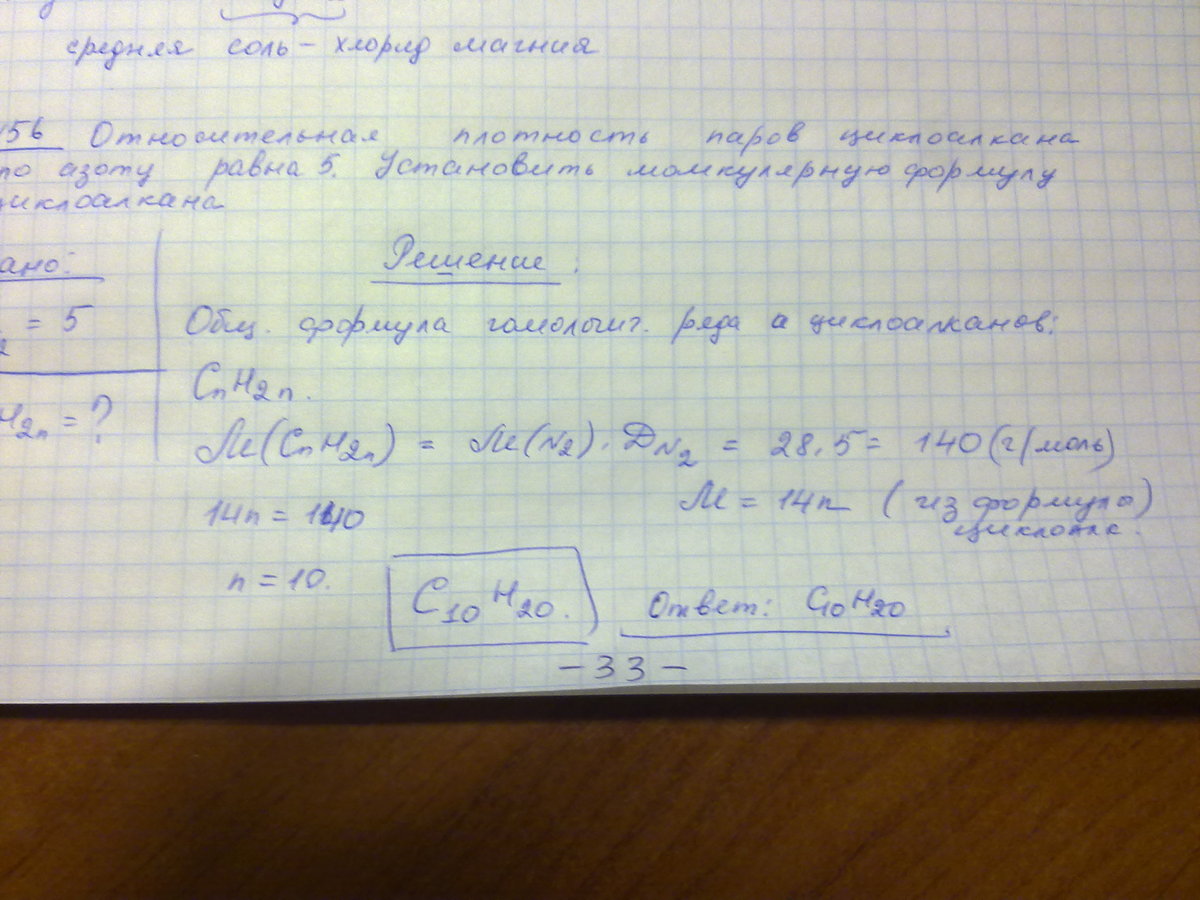 средняя соль – хлорид магния
156 Относительная плотность паров циклоалкана
по азоту равна 5. Установить молекулярную формулу
циклоалкана
ано:
Решение:
2 = 5
Общ. формула гомологич. ряда а циклоалканов:
CnH2n.
H2n = ?
M(CnH2n) = M(N2) · DN2 = 28 · 5 = 140 (г/моль)
14n = 140
M = 14n (из формулы)
циклоалк.
n = 10.
C10H20.
Ответ: C10H20
– 33 –